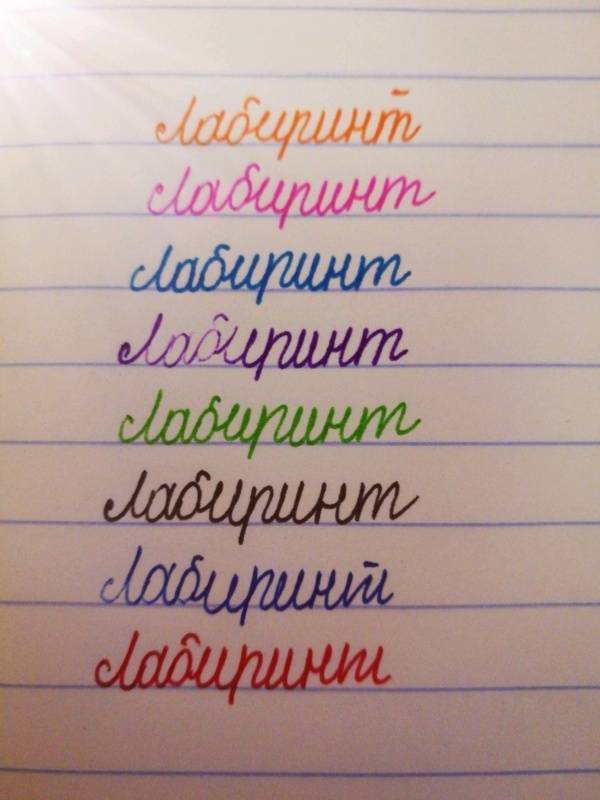 Лабиринт
Лабиринт
Лабиринт
Лабиринт
Лабиринт
Лабиринт
Лабиринт
Лабиринт